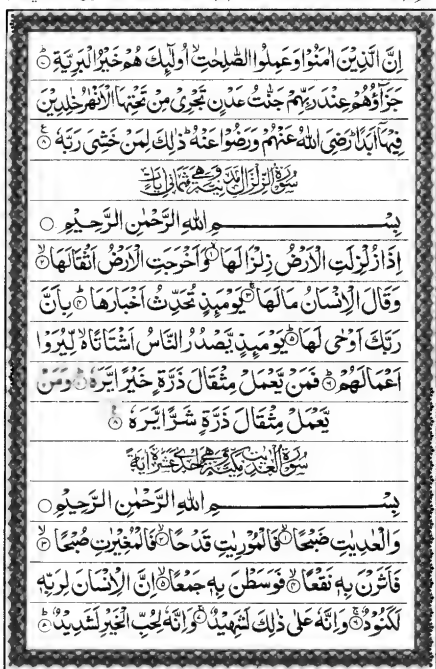 اِنَّ الَّذِيْنَ اٰمَنُوْا وَعَمِلُوا الصّٰلِحٰتِ اُولٰٓئِكَ هُمْ خَيْرُ الْبَرِيَّةِ ۝۷
جَزَآؤُهُمْ عِنْدَ رَبِّهِمْ جَنّٰتُ عَدْنٍ تَجْرِىْ مِنْ تَحْتِهَا الْاَنْهٰرُ خٰلِدِيْنَ
فِيْهَآ اَبَدًا رَضِىَ اللّٰهُ عَنْهُمْ وَرَضُوْا عَنْهُ ذٰلِكَ لِمَنْ خَشِىَ رَبَّهٗ ۝۸
سُوْرَةُ الزِّلْزَالِ مَدَنِيَّةٌ وَّهِىَ ثَمَانِىْ اٰيَاتٍ
بِسْمِ اللّٰهِ الرَّحْمٰنِ الرَّحِيْمِ ۝
اِذَا زُلْزِلَتِ الْاَرْضُ زِلْزَالَهَا ۝۱ وَاَخْرَجَتِ الْاَرْضُ اَثْقَالَهَا ۝۲
وَقَالَ الْاِنْسَانُ مَا لَهَا ۝۳ يَوْمَئِذٍ تُحَدِّثُ اَخْبَارَهَا ۝۴ بِاَنَّ
رَبَّكَ اَوْحٰى لَهَا ۝۵ يَوْمَئِذٍ يَّصْدُرُ النَّاسُ اَشْتَاتًا ە لِّيُرَوْا
اَعْمَالَهُمْ ۝۶ فَمَنْ يَّعْمَلْ مِثْقَالَ ذَرَّةٍ خَيْرًا يَّرَهٗ ۝۷ وَمَنْ
يَّعْمَلْ مِثْقَالَ ذَرَّةٍ شَرًّا يَّرَهٗ ۝۸
سُوْرَةُ الْعٰدِيٰتِ مَكِّيَّةٌ وَّهِىَ اِحْدٰى عَشْرَةَ اٰيَةً
بِسْمِ اللّٰهِ الرَّحْمٰنِ الرَّحِيْمِ ۝
وَالْعٰدِيٰتِ ضَبْحًا ۝۱ فَالْمُوْرِيٰتِ قَدْحًا ۝۲ فَالْمُغِيْرٰتِ صُبْحًا ۝۳
فَاَثَرْنَ بِهٖ نَقْعًا ۝۴ فَوَسَطْنَ بِهٖ جَمْعًا ۝۵ اِنَّ الْاِنْسَانَ لِرَبِّهٖ
لَكَنُوْدٌ ۝۶ وَاِنَّهٗ عَلٰى ذٰلِكَ لَشَهِيْدٌ ۝۷ وَاِنَّهٗ لِحُبِّ الْخَيْرِ لَشَدِيْدٌ ۝۸